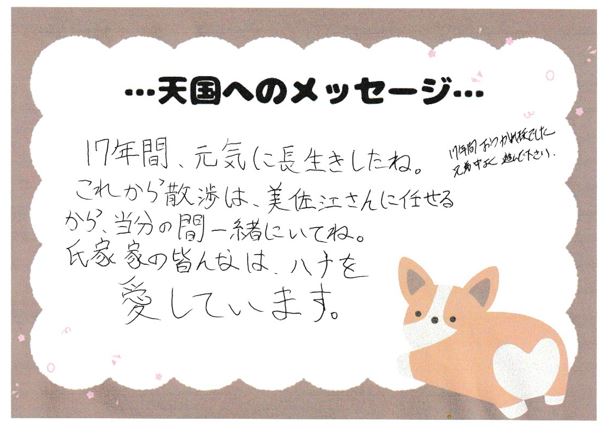 …天国へのメッセージ…
17年間、元気に長生きしたね。
これから散渉は、美佐江さんに任せる
から、当分の間一緒にいてね。
氏家家の皆んなは、ハナを
愛しています。
17年間おつかれ様でした
兄弟中よく遊んで下さい。